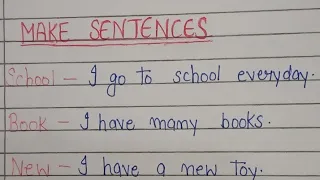 MAKE SENTENCES
School - I go to school everyday.
Book - I have many books.
New - I have a new Toy.